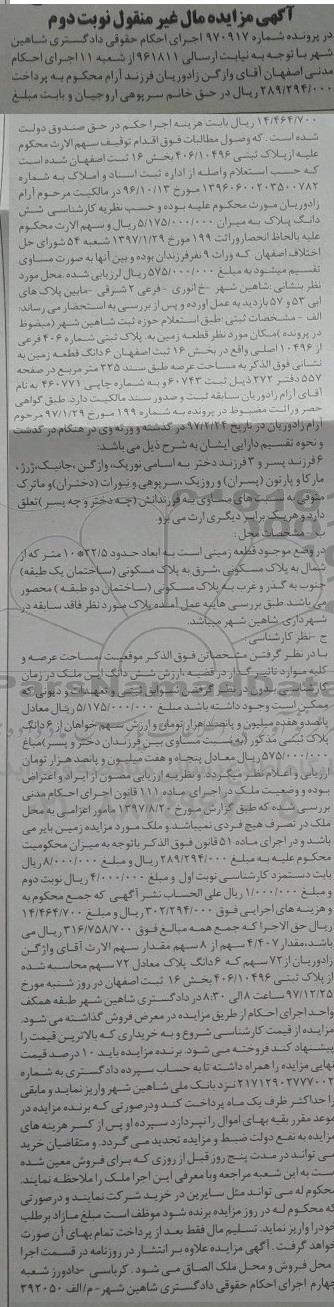 آگهی مزایده مال غیر منقول نوبت دوم
در پرونده شماره ۹۷۰۹۱۷ اجرای احکام حقوقی دادگستری شاهین
شهر با توجه به نیابت ارسالی ۹۶۱۸۱۱ از شعبه ۱۱ اجرای احکام
مدنی اصفهان آقای واژگن زادوریان فرزند آرام محکوم به پرداخت
۲۸۹/۲۹۴/۰۰۰ ریال در حق خانم سرپوهی اروجیان و بابت مبلغ
۱۴/۴۶۴/۷۰۰ ریال بابت هزینه اجرا حکم در حق صندوق دولت
شده است. که وصول مطالبات فوق اقدام توقیف سهم الارث محکوم
علیه از پلاک ثبتی ۴۰۶/۱۰۴۹۶ بخش ۱۶ ثبت اصفهان شده است
که حسب استعلام واصله از اداره ثبت اسناد و املاک به شماره
۱۳۹۶۰۶۰۰۲۰۳۵۰۰۷۸۲ مورخ ۹۶/۱۰/۱۳ در مالکیت مرحوم آرام
زادوریان مورث محکوم علیه بوده و حسب نظریه کارشناسی شش
دانگ پلاک به میزان ۵/۱۷۵/۰۰۰/۰۰۰ ریال و سهم الارث محکوم
علیه بالحاظ انحصار وراثت ۱۹۹ مورخ ۱۳۹۷/۱/۲۹ شعبه ۵۴ شورای حل
اختلاف اصفهان که وراث ۹ نفر فرزندان بوده و بین آنها به صورت مساوی
تقسیم میشود به مبلغ ۵۷۵/۰۰۰/۰۰۰ ریال ارزیابی شده. محل مورد
نظر بنشانی: شاهین شهر -خ انوری - فرعی ۲ شرقی -مابین پلاک های
آبی ۵۳ و ۵۷ بازدید به عمل آورده و پس از بررسی به استحضار می رساند:
الف - مشخصات ثبتی :طبق استعلام حوزه ثبت شاهین شهر (مضبوط
در پرونده) مکان مورد نظر قطعه زمین به. پلاک ثبتی شماره ۴۰۶ فرعی
از ۱۰۴۹۶ اصلی واقع در بخش ۱۶ ثبت اصفهان ۶ دانگ قطعه زمین به
نشانی فوق الذکر به مساحت عرصه طبق سند ۲۲۵ متر مربع در صفحه
۵۵۷ دفتر ۲۷۲ ذیل ثبت ۶۰۷۴۳ و به شماره چاپی ۴۶۰۷۷۱ به نام
آقای آرام زادوریان سابقه ثبت و صدور سند مالکیت دارد. طبق گواهی
حصر وراثت مضبوط در پرونده به شماره ۱۹۹ مورخ ۹۷/۱/۲۹ مرحوم
آرام زادوریان در تاریخ ۹۷/۲/۲۴ در گذشته و ورثه وی در هنگام در گذشت
و نحوه تقسیم دارایی ایشان به شرح ذیل می باشد:
۶ فرزند پسر و ۳ فرزند دختر به اسامی نوریک، واژگن ،جانیک،ژرژ،
مارکا و پارتون (پسران) و روزیک ،سرپوهی و نیورات (دختران) و ماترک
متوفی به نسبت های مساوی به فرزندانش (چه دختر و چه پسر) تعلق
دارد و هر یک برابر دیگری ارث می برد.
ب - مشخصات محل :
در وضع موجود قطعه زمینی است به ابعاد حدود ۲۲/۵*۱۰ متر که از
شمال به پلاک مسکونی ،شرق به پلاک مسکونی (ساختمان یک طبقه)
جنوب به گذر و غرب به پلاک مسکونی (ساختمان دو طبقه ) محصور
می باشد. طبق بررسی هایبه عمل آمده پلاک مورد نظر فاقد سابقه در
شهرداری شاهین شهر میباشد.
ج -نظر کارشناسی :
با در نظر گرفتن مشخصاتن فوق الذکر موقعیت ،مساحت عرصه و
کلیه موارد تاثیر گذار در قضیه ،ارزش شش دانگ این ملک در زمان
کارشناسی بدون در نظر گرفتن سوابق ثبتی و تعهدات و دیونی که
ممکن است وجود داشته باشد مبلغ ۵/۱۷۵/۰۰۰/۰۰۰ ریال معادل
پانصد و هفده میلیون و پانصد هزار تومان و ارزش سهم خواهان از ۶ دانگ
پلاک ثبتی مذکور (به نسبت مساوی بین فرزندان دختر و پسر) مبلغ
۵۷۵/۰۰۰/۰۰۰ ریال معادل پنجاه و هفت میلیون و پانصد هزار تومان
ارزیابی و اعلام نظر میگردد. و نظریه ارزیابی مصون از ایراد و اعتراض
بوده و وضعیت ملک در اجرای ماده ۱۱۱ قانون اجرای احکام مدنی
بررسی شده که طبق گزارش مورخ ۱۳۹۷/۸/۲۰ مامور اعزامی به محل
ملک در تصرف هیچ فردی نمیباشد. و ملک مورد مزایده زمین بایر می
باشد و در اجرای ماده ۵۱ قانون فوق الذکر با توجه به میزان محکومیت
محکوم علیه به مبلغ ۲۸۹/۲۹۴/۰۰۰ ریال و مبلغ ۸/۰۰۰/۰۰۰ ریال
بابت دستمزد کارشناسی نوبت اول و مبلغ ۴/۰۰۰/۰۰۰ ریال نوبت دوم
و مبلغ ۱/۰۰۰/۰۰۰ ریال علی الحساب نشر آگهی که جمع محکوم به
و هزینه های اجرایی فوق ۳۰۲/۲۹۴/۰۰۰ ریال و مبلغ ۱۴/۴۶۴/۷۰۰
ریال حق الاجرا که جمع همه مبالغ فوق ۳۱۶/۷۵۸/۷۰۰ ریال می
باشد،مقدار ۴/۴۰۷ سهم از ۸ سهم مقدار سهم الارث آقای واژگن
زادوریان از ۷۲ سهم که ۶ دانگ پلاک معادل ۷۲ سهم محاسبه شده
از پلاک ثبتی ۴۰۶/۱۰۴۹۶ بخش ۱۶ ثبت اصفهان در روز شنبه مورخ
۹۷/۱۲/۲۵ ساعت ۸ الی ۸:۳۰ در دادگستری شاهین شهر طبقه همکف
واحد اجرای احکام از طریق مزایده در معرض فروش گذاشته می شود.
مزایده از قیمت کارشناسی شروع و به خریداری که بالاترین قیمت را
پیشنهاد کند فروخته می شود. برنده مزایده باید ۱۰ درصد قیمت
نهایی مزایده را همراه داشته تا به حساب سپرده دادگستری به شماره
۲۱۷۱۲۹۰۲۷۷۷۰۰۲ نزد بانک ملی شاهین شهر واریز نماید و مابقی
را حداکثر ظرف یک ماه پرداخت کند و در صورتی که برنده مزایده در
موعد مقرر بقیه بهای اموال را نپردازد سپرده او پس از کسر هزینه های
مزایده به نفع دولت ضبط و مزایده تجدید می گردد. و متقاضیان خرید
می توانند در مدت پنج روز قبل از روزی که برای فروش معین شده
است به این شعبه مراجعه و با معرفی این اجرا ملک را ملاحظه نمایند.
محکوم له می تواند مثل سایرین در خرید شرکت نمایند و در صورتی
که محکوم له در روز مزایده برنده شود موظف است مبلغ مازاد بر طلب
خود را واریز نماید. تسلیم مال فقط بعد از پرداخت تمام بهای آن صورت
خواهد گرفت. آگهی مزایده علاوه بر انتشار در روزنامه در قسمت اجرا
و محل فروش و محل ملک الصاق می شود. کرباسی -دادورز شعبه
چهارم اجرای احکام حقوقی دادگستری شاهین شهر-م/الف ۳۹۲۰۵۰